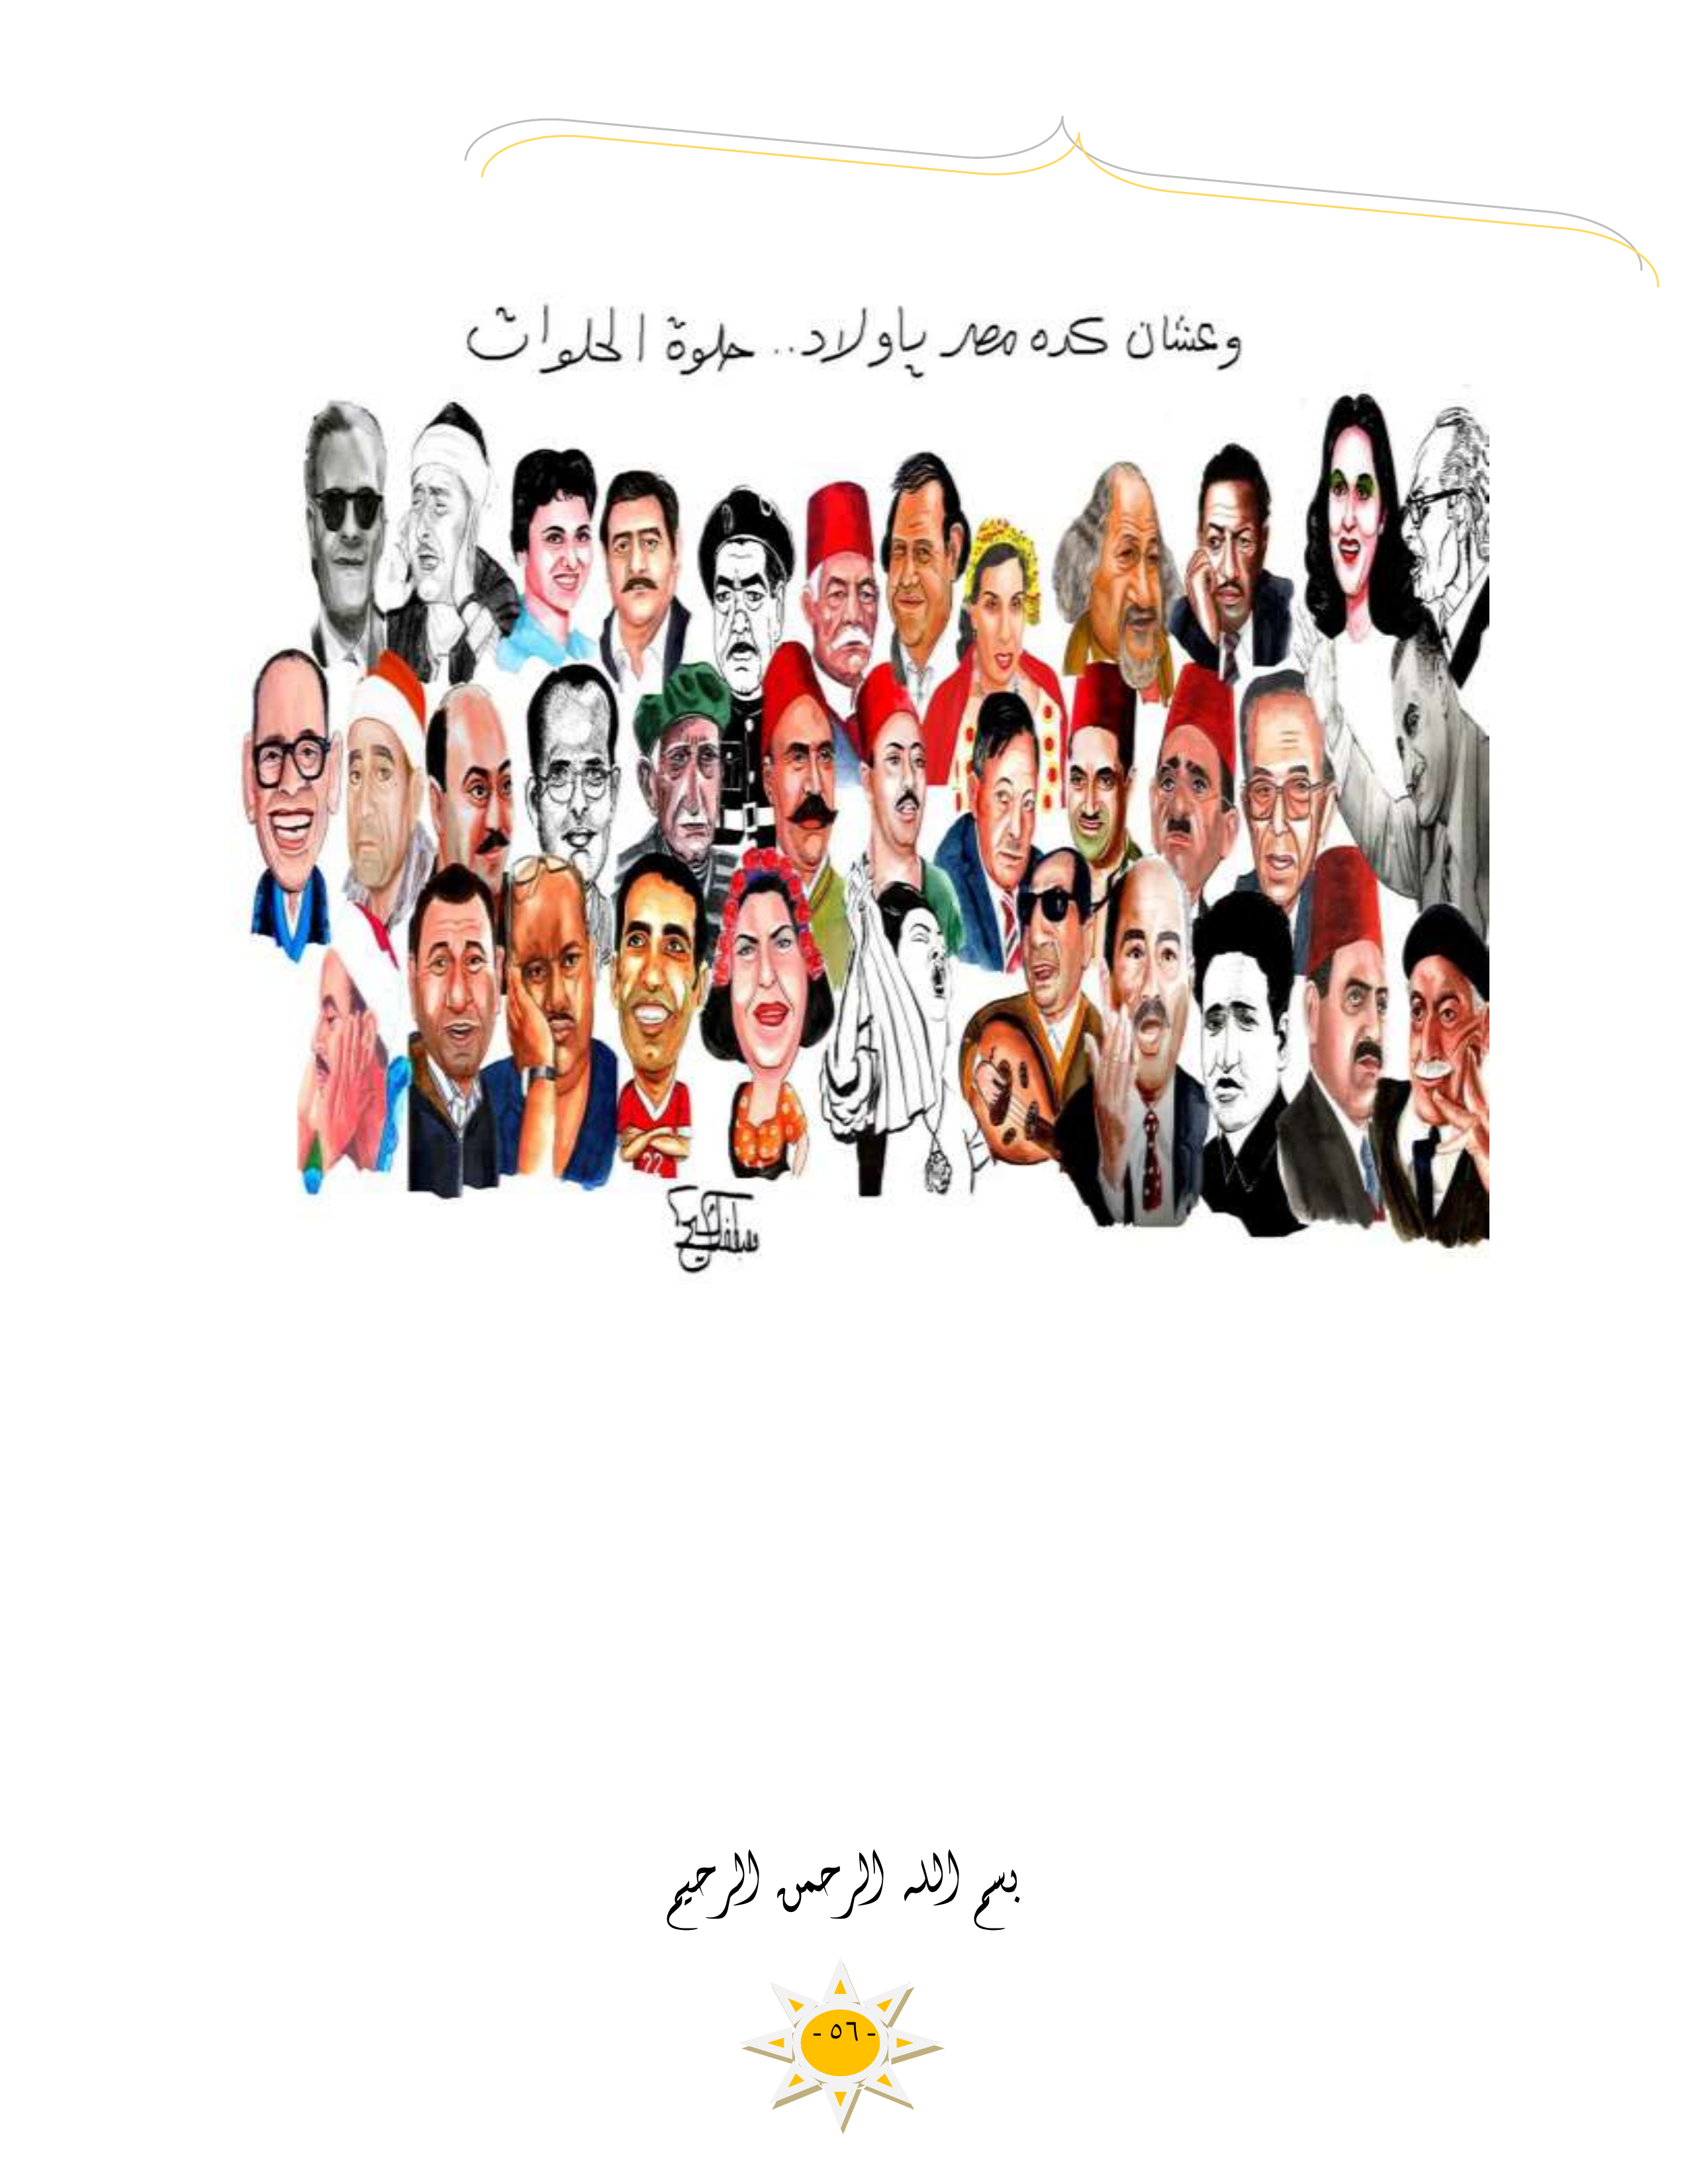 وعشان كده مصر ياولاد.. حلوة الحلوات
22
بسم الله الرحمن الرحيم
- ٥٦ -